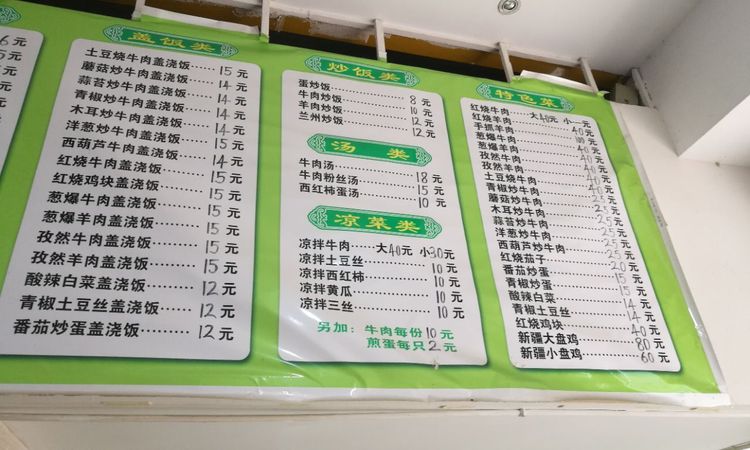 6元
5元
盖饭类
土豆烧牛肉盖浇饭……15元
蘑菇炒牛肉盖浇饭……14元
蒜苔炒牛肉盖浇饭……14元
青椒炒牛肉盖浇饭……14元
木耳炒牛肉盖浇饭……14元
洋葱炒牛肉盖浇饭……15元
西葫芦牛肉盖浇饭……14元
红烧牛肉盖浇饭……15元
红烧鸡块盖浇饭……15元
葱爆牛肉盖浇饭……15元
葱爆羊肉盖浇饭……15元
孜然牛肉盖浇饭……15元
孜然羊肉盖浇饭……15元
酸辣白菜盖浇饭……12元
青椒土豆丝盖浇饭……12元
番茄炒蛋盖浇饭……12元
炒饭类
蛋炒饭……8元
牛肉炒饭……10元
羊肉炒饭……12元
兰州炒饭……12元
汤 类
牛肉汤……18元
牛肉粉丝汤……15元
西红柿蛋汤……10元
凉菜类
凉拌牛肉 大40元 小30元
凉拌土豆丝……10元
凉拌西红柿……10元
凉拌黄瓜……10元
凉拌三丝……10元
另加：牛肉每份10元
煎蛋每只2元
特色菜
红烧牛肉 大40元 小 元
红烧羊肉……40元
手抓羊肉……元
葱爆牛肉……40元
葱爆羊肉……40元
孜然牛肉……40元
孜然羊肉……40元
土豆烧牛肉……40元
青椒炒牛肉……25元
蘑菇炒牛肉……25元
木耳炒牛肉……25元
蒜苔炒牛肉……25元
洋葱炒牛肉……25元
西葫芦炒牛肉……25元
红烧茄子……20元
番茄炒蛋……15元
青椒炒蛋……15元
酸辣白菜……14元
青椒土豆丝……14元
红烧鸡块……40元
新疆大盘鸡……80元
新疆小盘鸡……60元